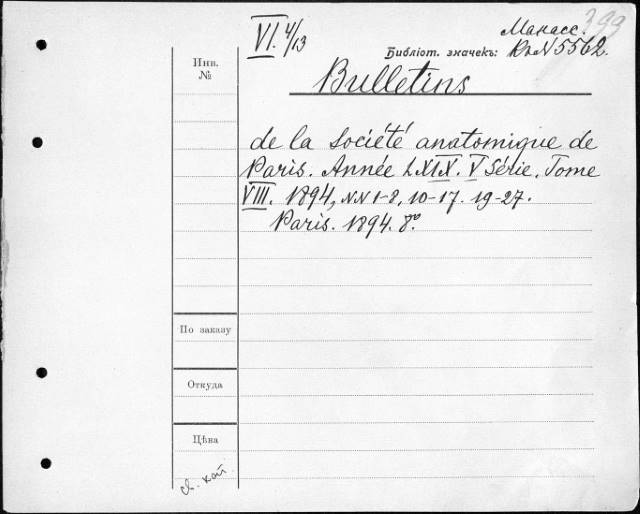 399
VI. 4/13
Манасс.
Библіот. значекъ: Кв N 5562.
Инв.
№
Bulletins
de la Société anatomique de
Paris. Année LXIX. V Série. Tome
VIII. 1894, NN 1-8, 10-17. 19-27.
Paris. 1894. 8°.
По заказу
Откуда
Цѣна
св. кат.